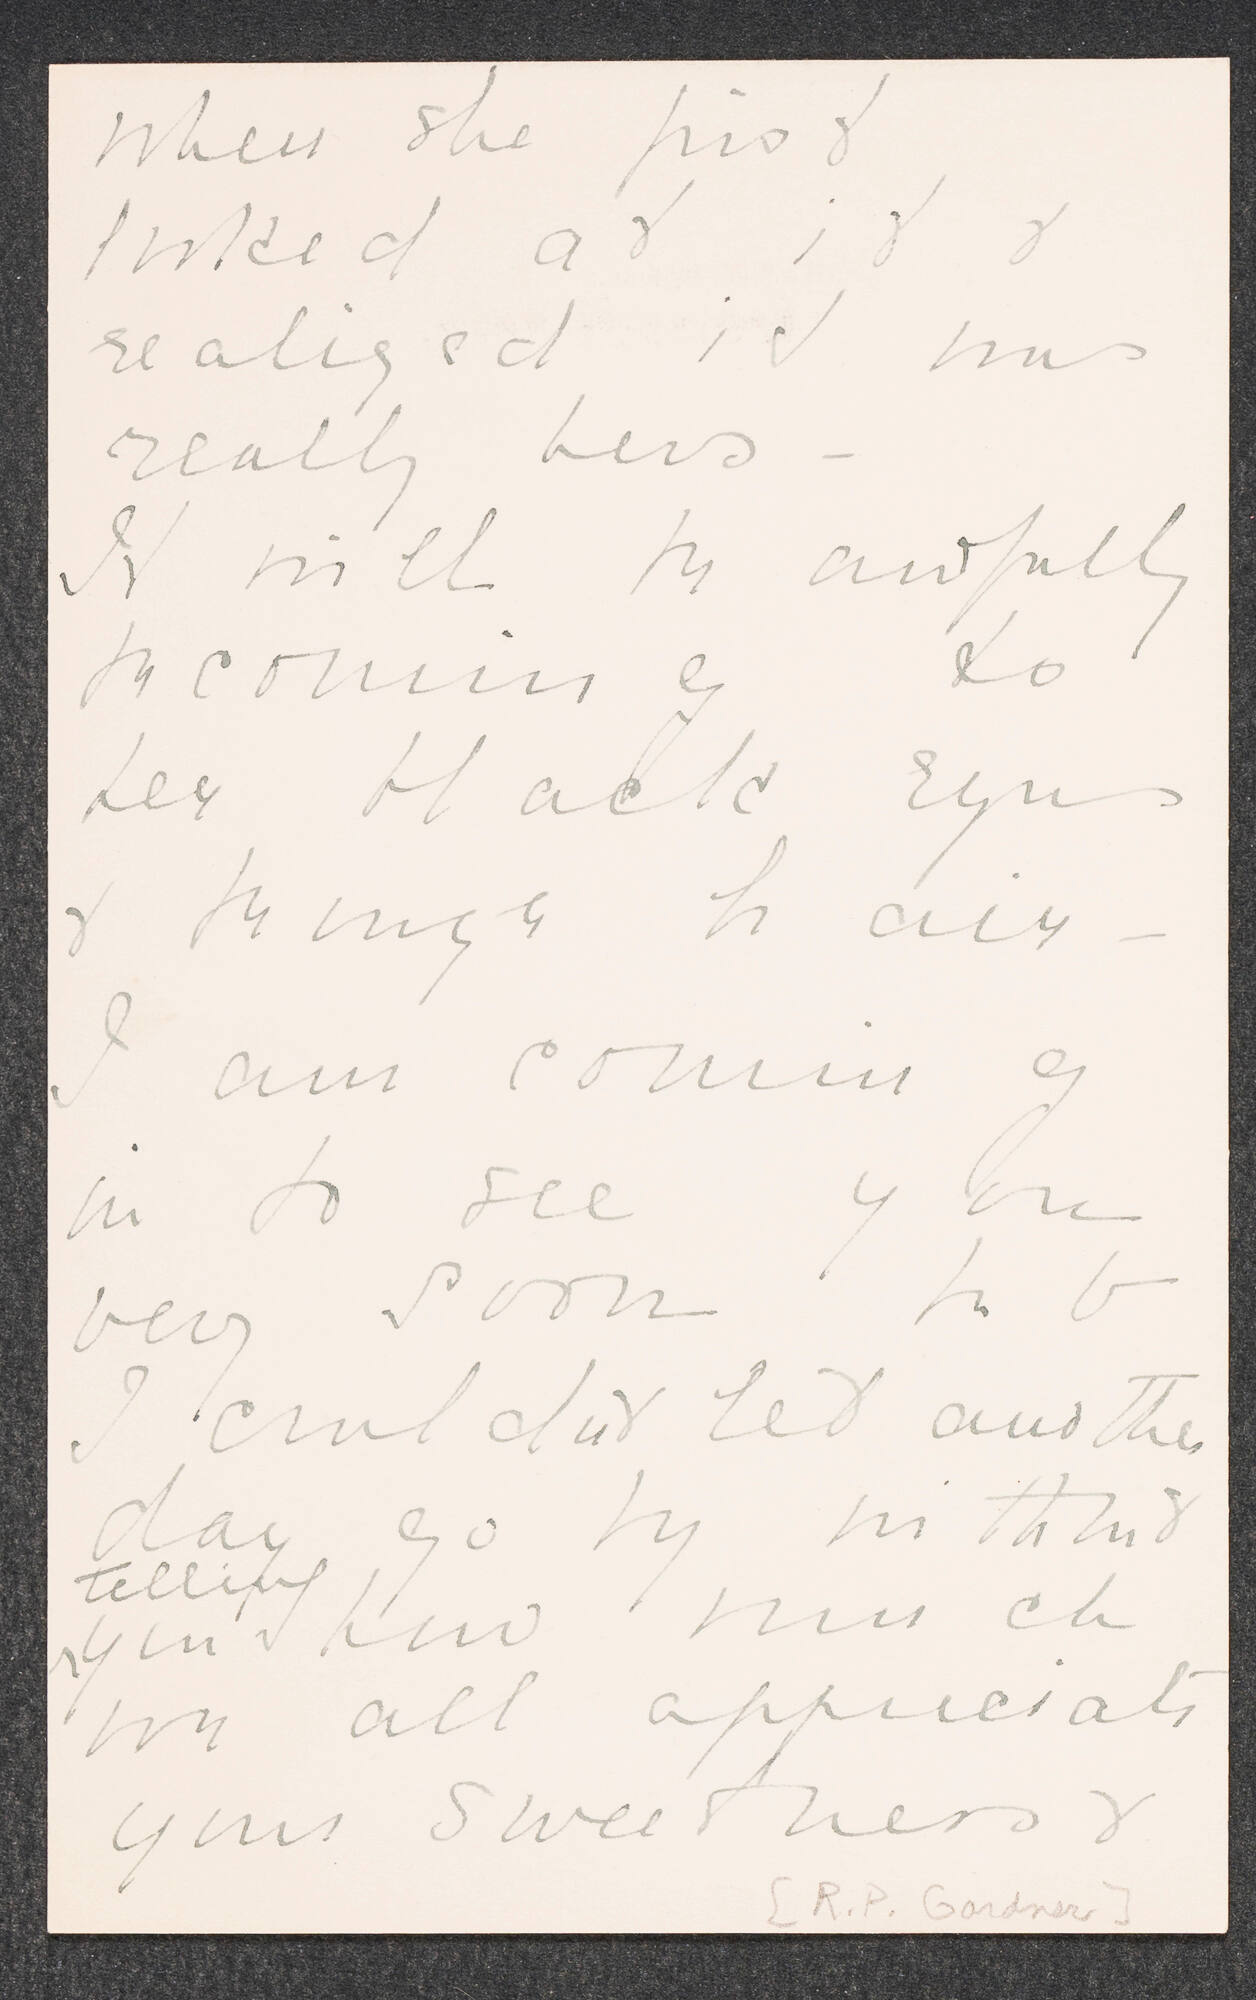 when she first
looked at it &
realized it was
really hers -
It will be awfully
becoming to
her black eyes
& hair -
I am coming
in to see you
very soon but
I couldn't let another
day go by without
telling
you how much
we all appreciate
your sweetness &
[R.P. Gardner]